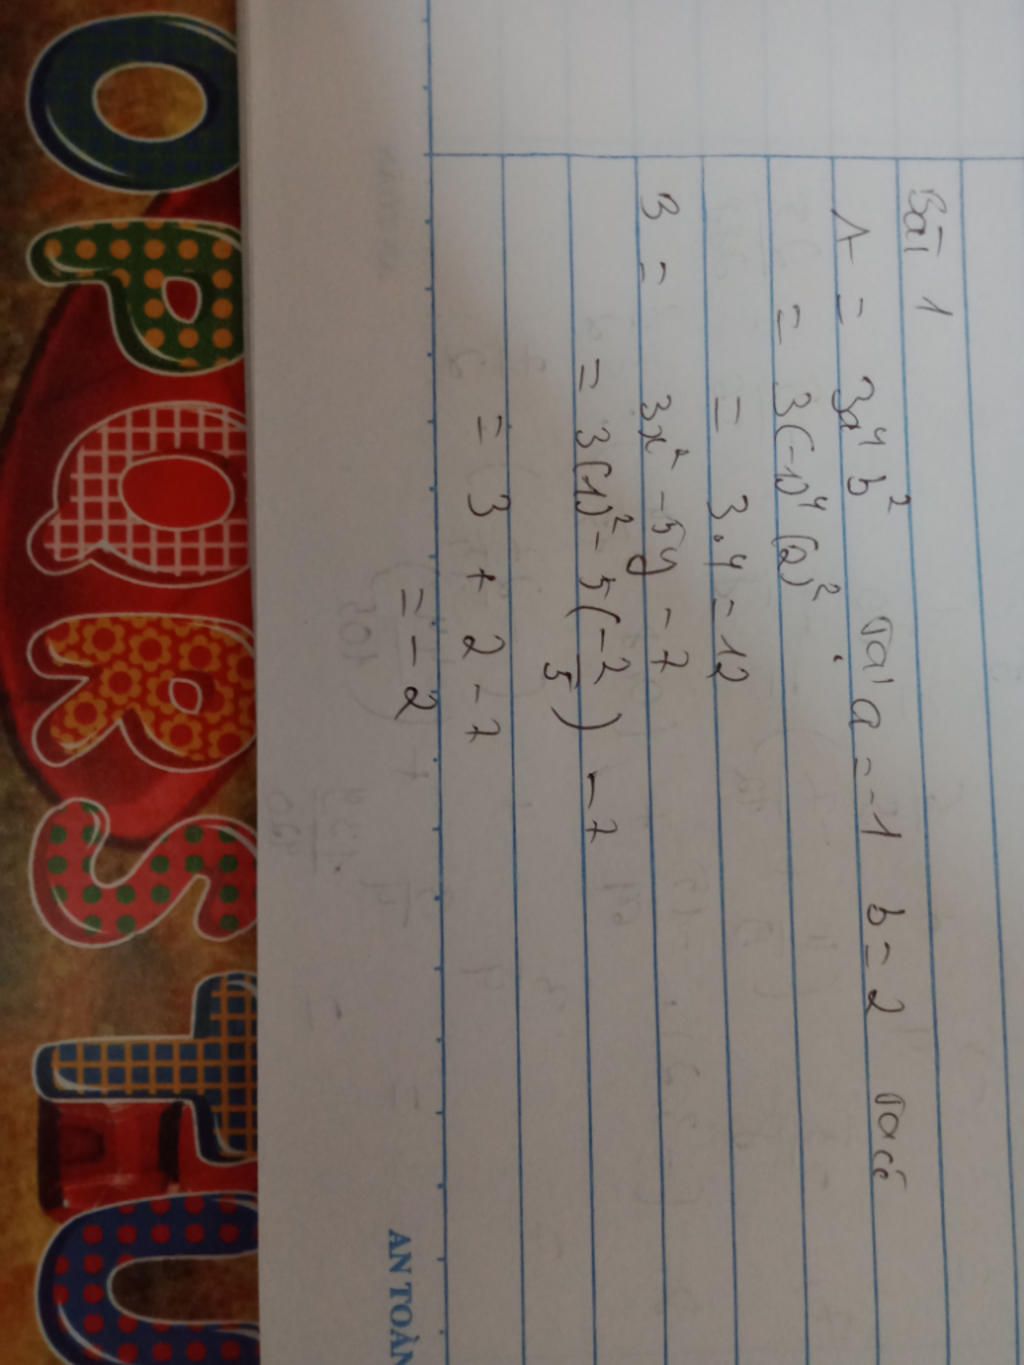 Bài 1
A = 3a⁴b² Tại a = -1 b = 2 ta có
= 3(-1)⁴ (2)²
= 3.4 = 12
B = 3x² - 5y - 7
= 3(1)² - 5(-2/5) - 7
= 3 + 2 - 7
= -2
AN TOÀN
O P Q R S T U